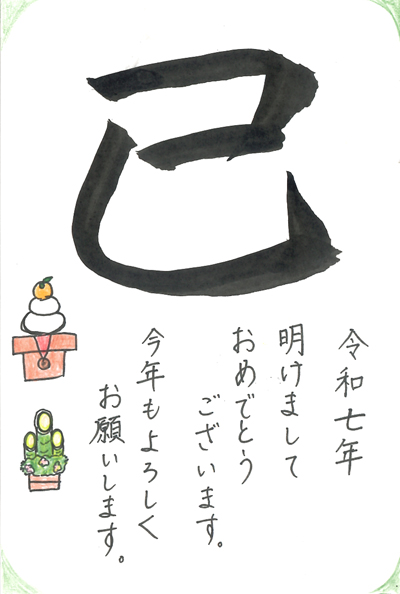 巳
令和七年
明けまして
おめでとう
ございます。
今年もよろしく
お願いします。